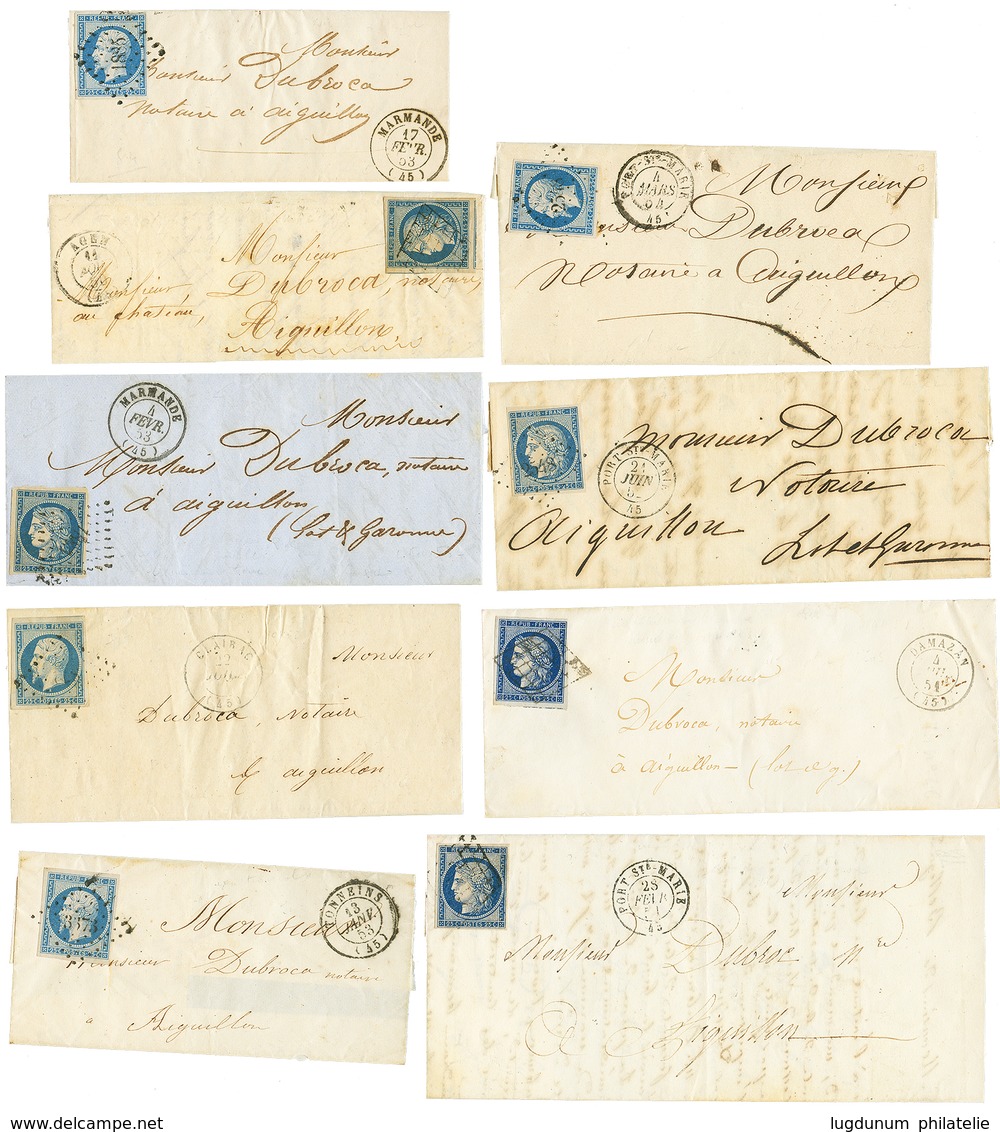 REPUB. FRANC.
25 C. POSTES 25 C.
1896
Monsieur
Monsieur Dubroca
Notaire à aiguillon
MARMANDE
17
FEVR.
53
(45)
PORT-STE-MARIE
4
MARS
54
45
Monsieur
Monsieur Dubroca
Notaire a Aiguillon
AGEN
Monsieur
Monsieur Dubroca, notaire,
au chateau,
Aiguillon,
MARMANDE
4
FEVR.
53
(45)
Monsieur
Monsieur Dubroca, notaire
à aiguillon
(Lot & Garonne)
REPUB. FRANC.
25 C. POSTES 25 C.
REPUB. FRANC.
25 C. POSTES 25 C.
PORT STE MARIE
21
JUIN
45
Monsieur Dubroca
Notaire
Aiguillon Lot et Garonne
REPUB. FRANC.
25 C. POSTES 25 C.
CLAIRAC
(45)
Monsieur
Dubroca, Notaire
aiguillon
REPUB. FRANC.
25 C. POSTES 25 C.
DAMAZAN
4
51
(45)
Monsieur
Dubroca, notaire
à aiguillon – (lot & g.)
REPUB. FRANC.
25 C. POSTES 25 C.
TONNEINS
13
JANV.
53
(45)
Monsieur
Monsieur Dubroca notaire
a Aiguillon
25 C. POSTES 25 C.
PORT STE MARIE
28
FEVR
51
45
Monsieur
Monsieur Dubroc Nre
a Aiguillon
www.delcampe.net
lugdunum philatelie